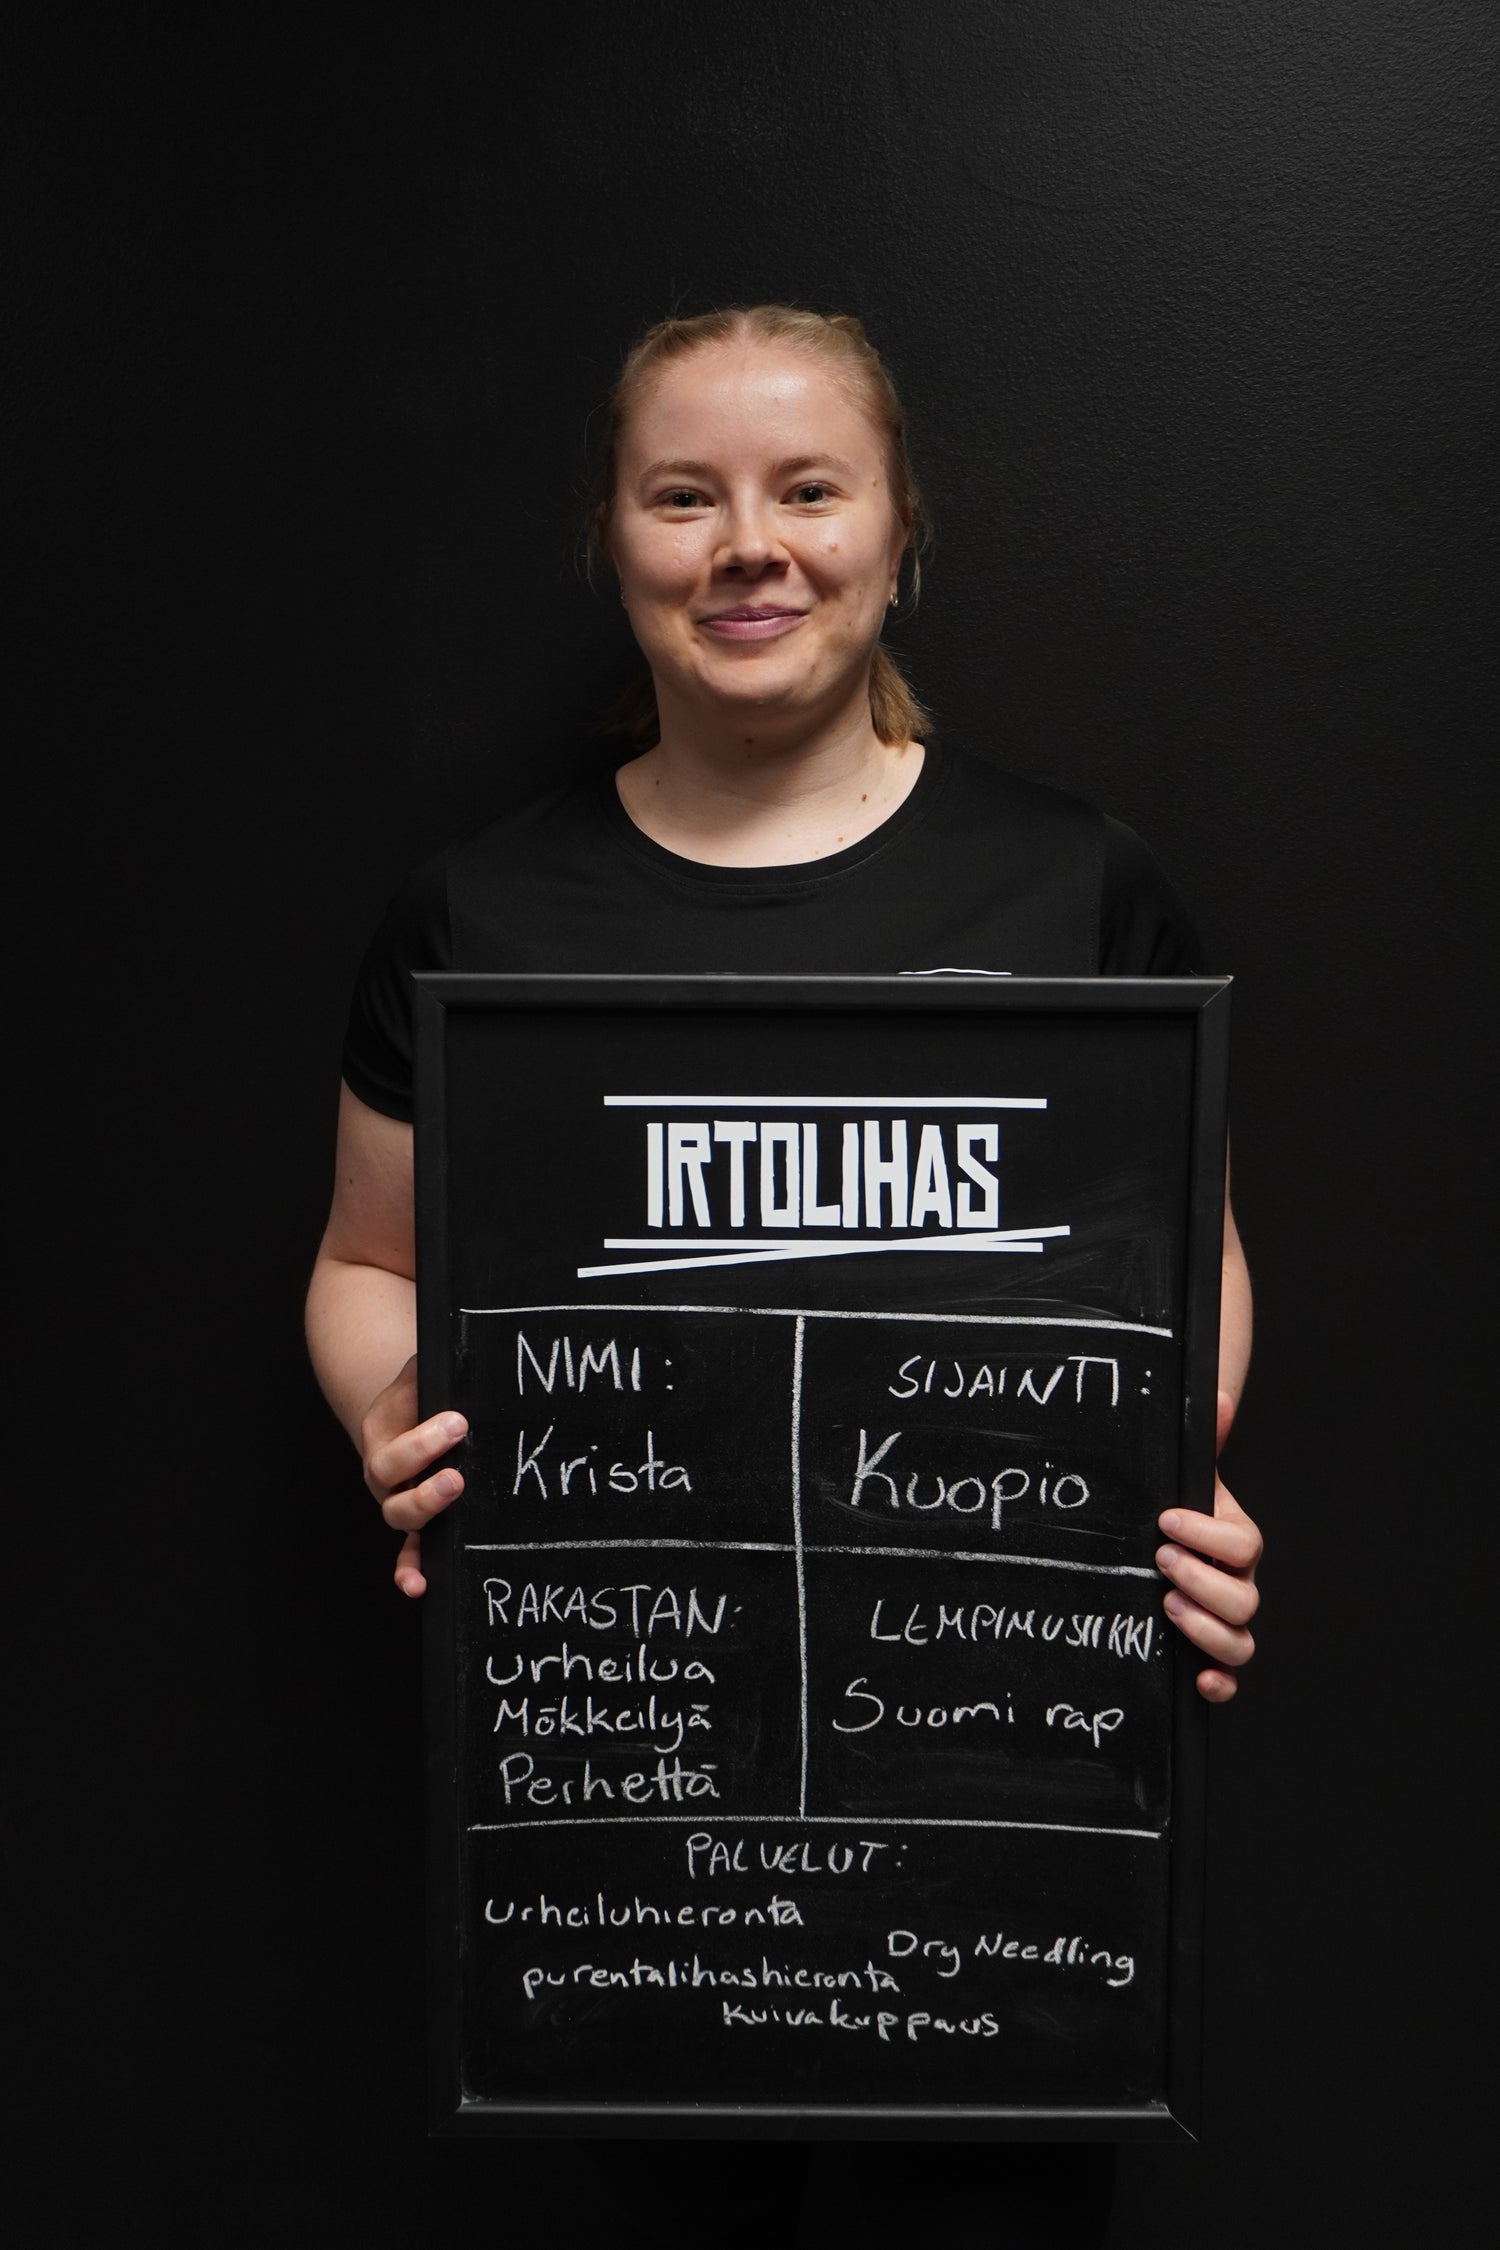 IRTOLIHAS
NIMI:
Krista
SIJAINTI:
Kuopio
RAKASTAN:
urheilua
Mökkeilyä
Perhettä
LEMPIMUSIIKKI:
Suomi rap
PALVELUT:
Urheiluhieronta
Dry Needling
purentalihashieronta
Kuivakuppaus